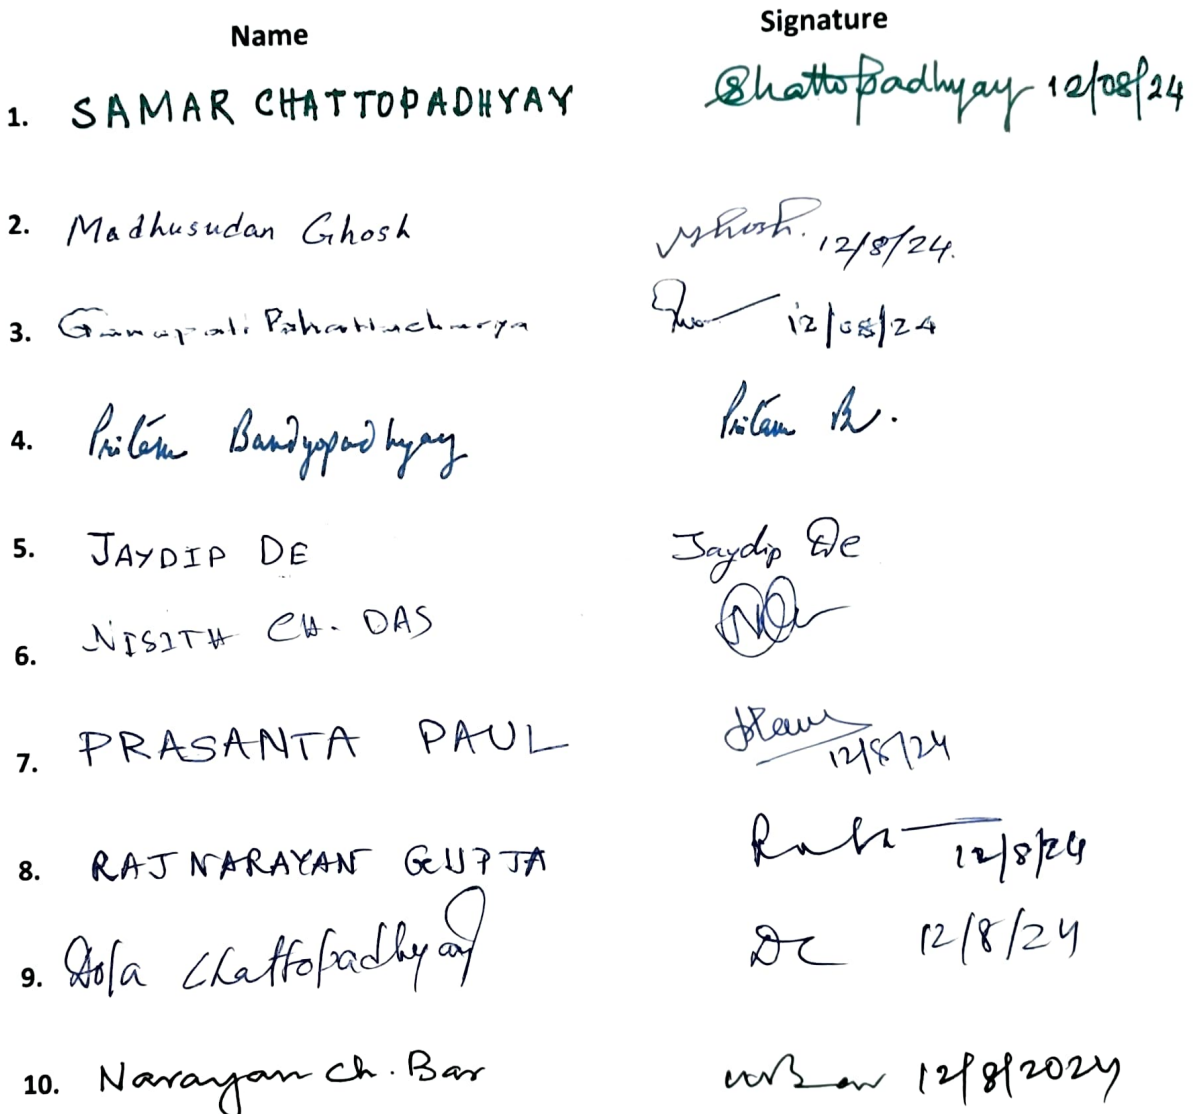 Name Signature
1. SAMAR CHATTOPADHYAY Chattopadhyay 12/08/24
2. Madhusudan Ghosh MGhosh. 12/8/24.
3. Ganapati Bhattacharya 12/08/24
4. Pritam Bandyopadhyay Pritam B.
5. JAYDIP DE Jaydip De
6. NISITH CH. DAS
7. PRASANTA PAUL 12/8/24
8. RAJ NARAYAN GUPTA 12/8/24
9. Dola Chattopadhyay DC 12/8/24
10. Narayan Ch. Bar 12/8/2024